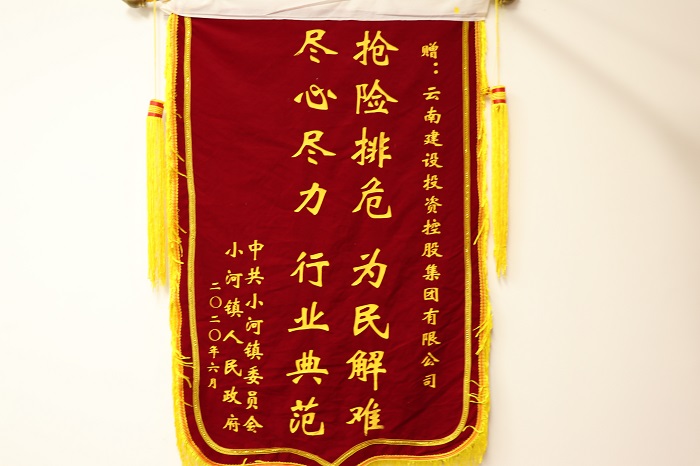 赠：云南建设投资控股集团有限公司
抢险排危 为民解难
尽心尽力 行业典范
中共小河镇委员会
小河镇人民政府
二〇二〇年六月